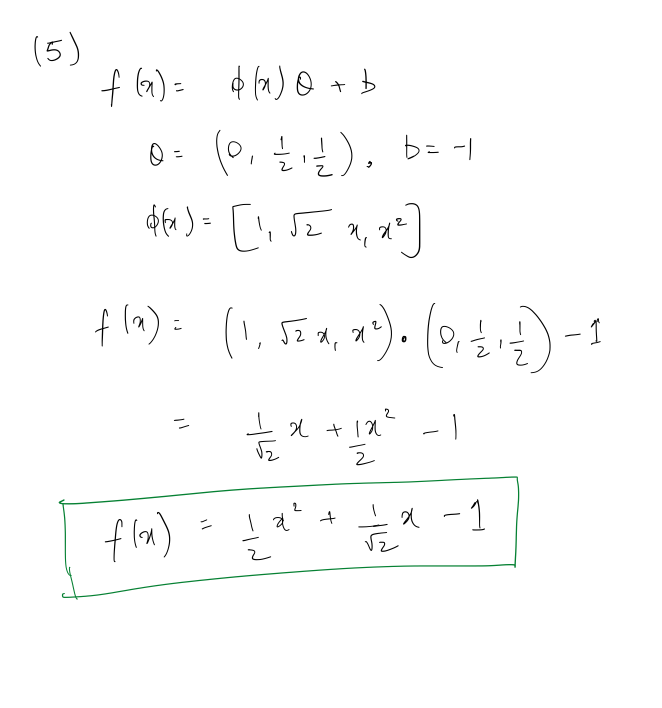 (5)
f(x) = ϕ(x) θ + b
θ = (0, 1/2, 1/2), b = -1
ϕ(x) = [1, √2 x, x²]
f(x) = (1, √2 x, x²) • (0, 1/2, 1/2) - 1
= 1/√2 x + 1/2 x² - 1
f(x) = 1/2 x² + 1/√2 x - 1